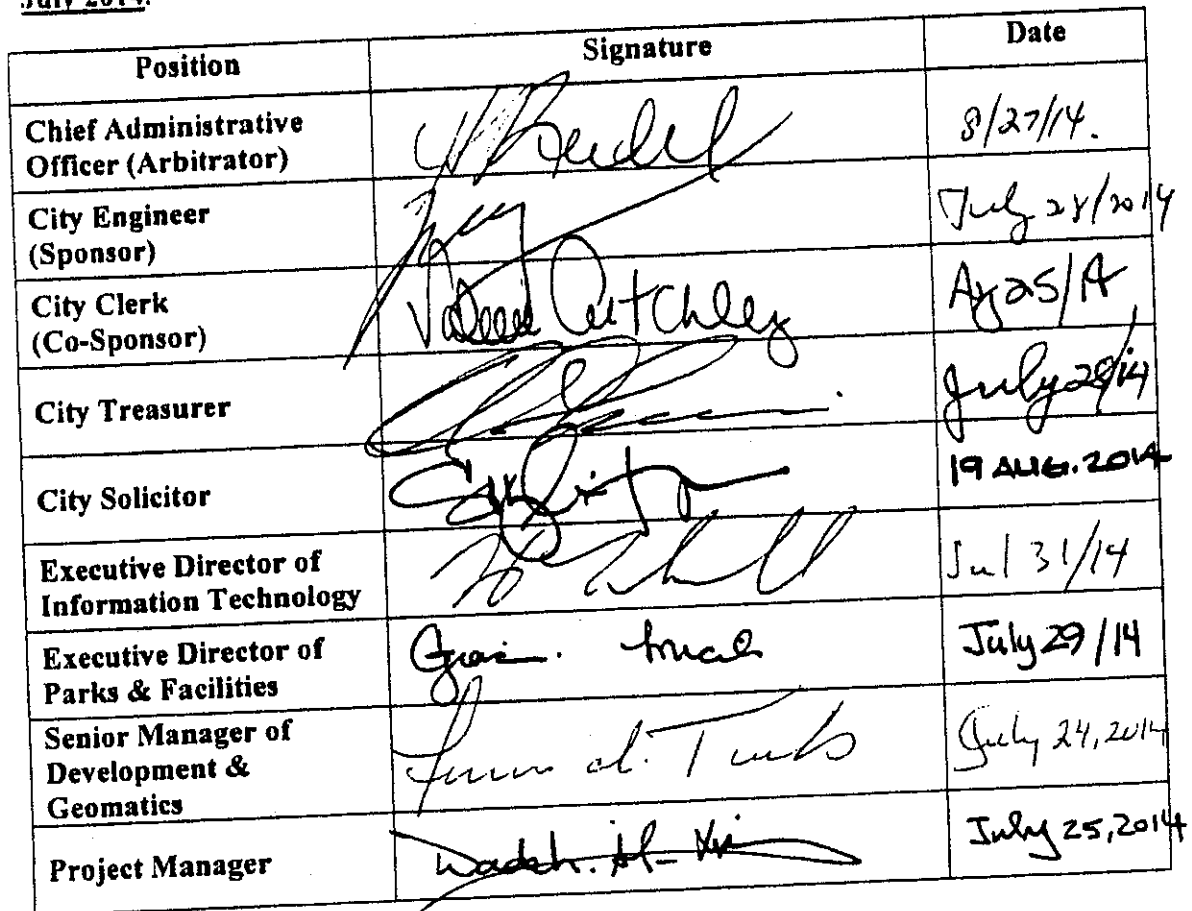 July 2014.
Position Signature Date
Chief Administrative
Officer (Arbitrator) 8/27/14.
City Engineer
(Sponsor) July 28/2014
City Clerk
(Co-Sponsor) Critchley 25/14
City Treasurer July 28/14
City Solicitor 19 AUG. 2014
Executive Director of
Information Technology Jul 31/14
Executive Director of
Parks & Facilities July 29/14
Senior Manager of
Development &
Geomatics July 24, 2014
Project Manager Wadah. Al- July 25, 2014